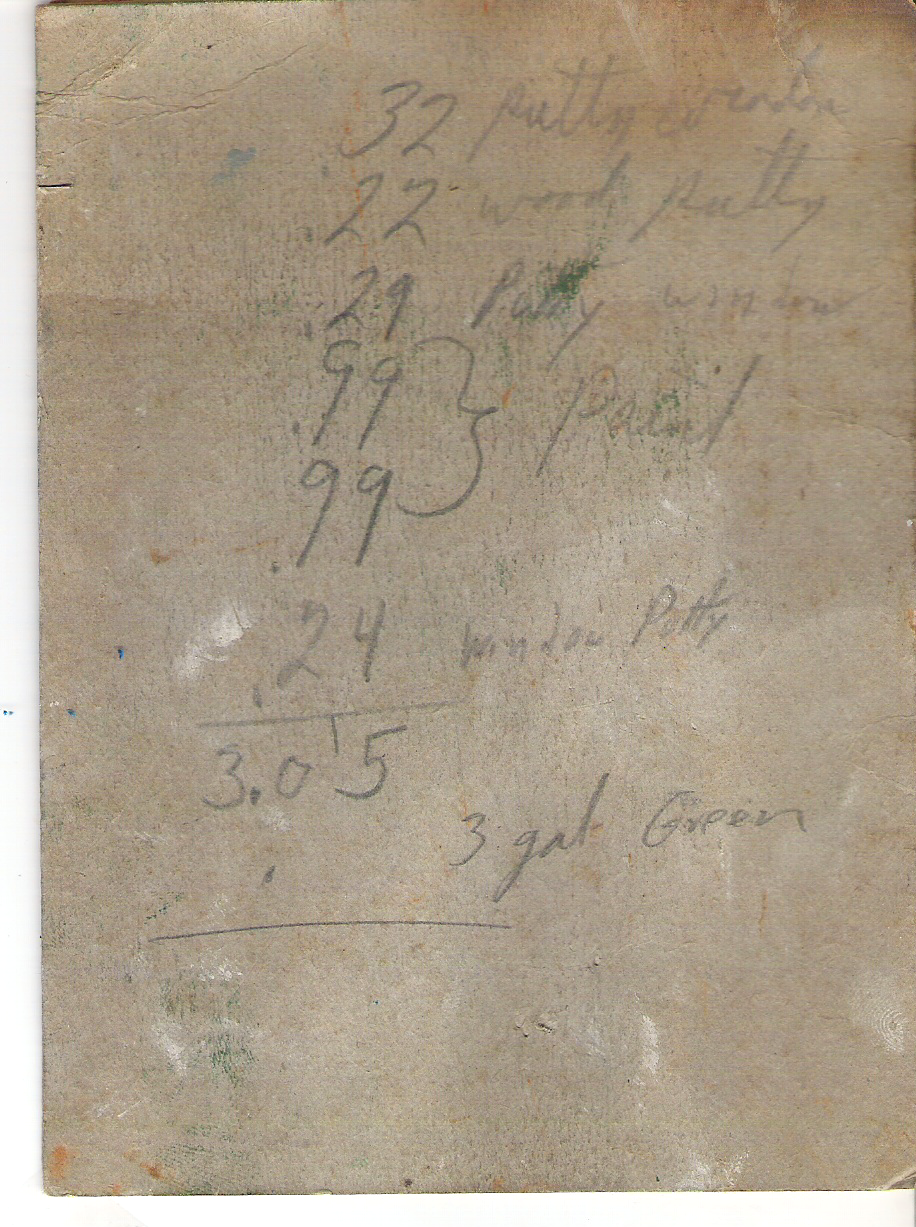 .32 Putty window
.22 wood Putty
.29 Putty window
.99
.99 } Paint
.24 window Putty
3.05
3 gal Green